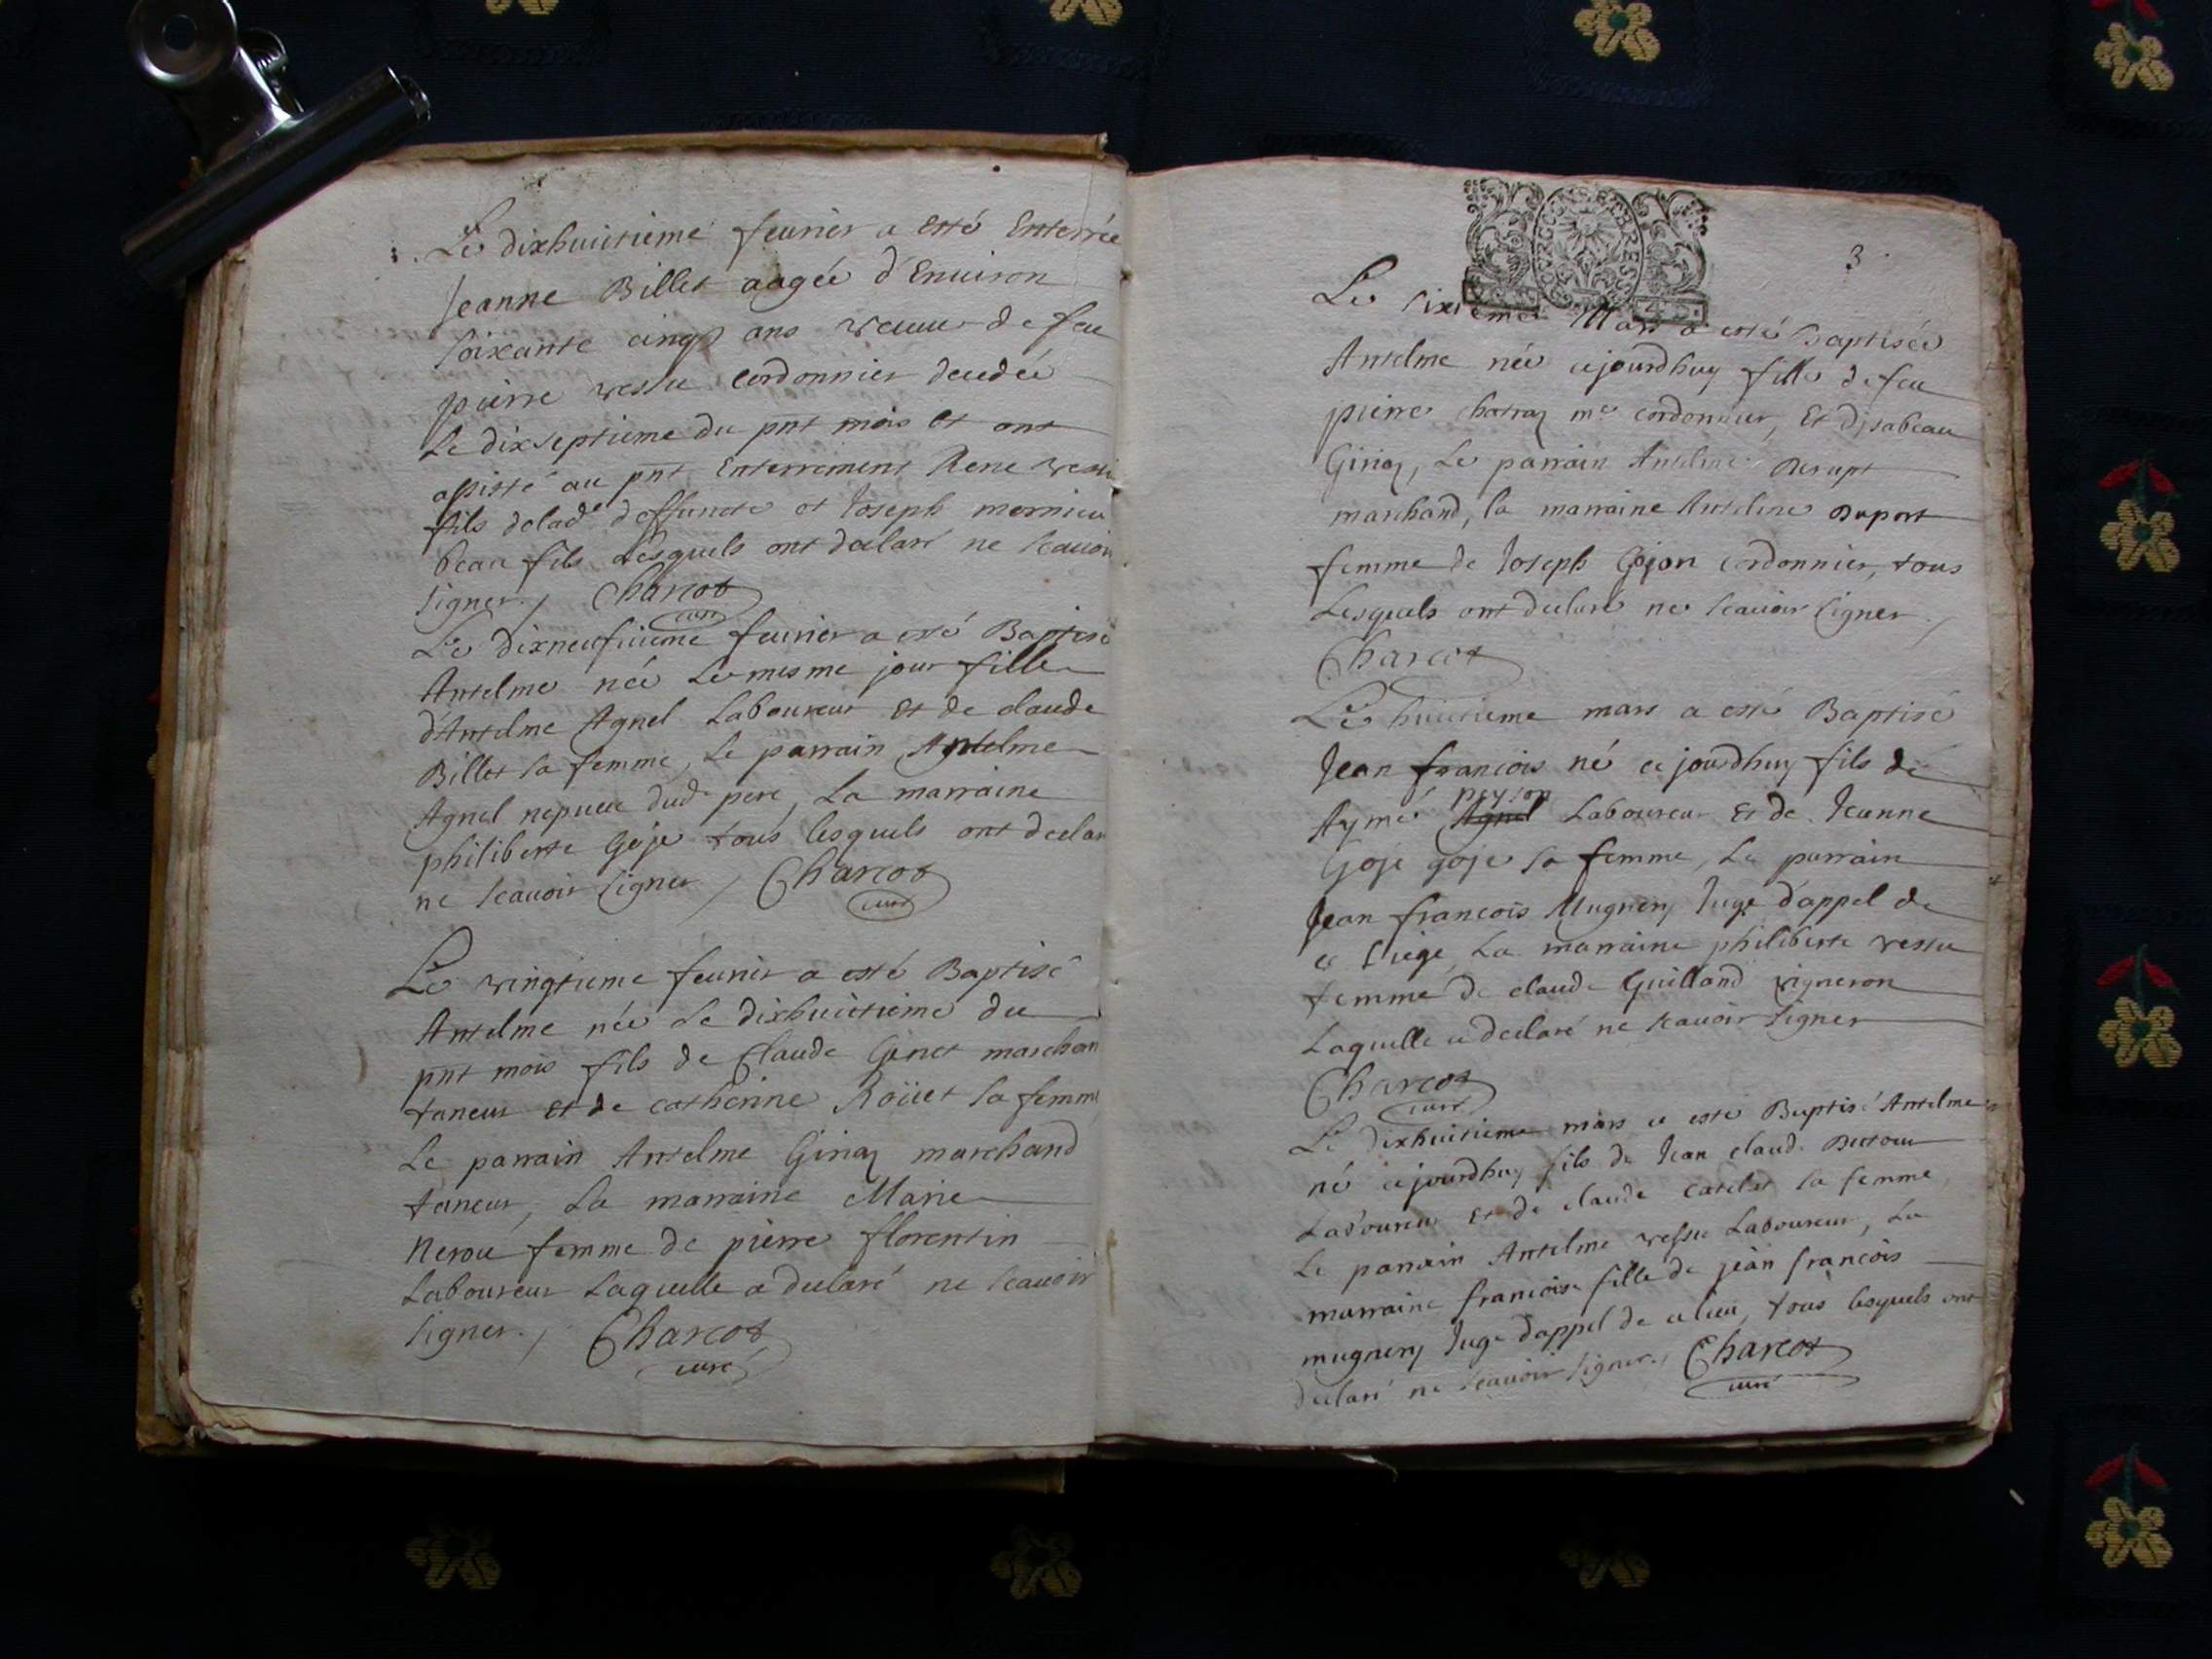 Le dixhuictieme feurier a esté Enterrée
Jeanne Billet aagée d'Enuiron
soixante cinq ans veuue de feu
pierre vessu cordonnier decedée
Le dixseptieme du pnt mois et ont
assisté au pnt Enterrement Rene vessu
fils delade deffuncte et Joseph mornieu
beau fils Lesquels ont declaré ne scauoir
signer./ Charcot
curé
Le dixneufuieme feurier a esté Baptisé
Antelme née Le mesme jour fille
d'Antelme Agnel Laboureur Et de claude
Billet sa femme, Le parrain Antelme
Agnel nepueu dud pere, La marraine
philiberte Goje tous lesquels ont declar
ne scauoir signer / Charcot
curé
Le vingtieme feurier a esté Baptisé
Antelme née Le dixhuictieme du
pnt mois fils de Claude Ginet marchan
taneur et de catherine Roüet sa femme
Le parrain Antelme Girier marchand
taneur, La marraine Marie
Nerou femme de pierre florentin
Laboureur Laquelle a declaré ne scauoir
signer./ Charcot
curé
BOURG ET BRESSE
3
Le sixieme Mars a esté Baptisée
Antelme née cejourdhuy fille de feu
pierre me cordonnier, Et disabeau
Le parrain Antelme Derupt
marchand, la marraine Antelme Duport
femme de Joseph Gojon cordonnier, tous
Lesquels ont declaré ne scauoir signer./
Charcot
Le huictieme mars a esté Baptisé
Jean francois né cejourdhuy fils de
peyson
Aymé Agnel Laboureur Et de Jeanne
Goje goje sa femme, Le parrain
Jean francois Mugnery Juge d'appel de
ce siege, La marraine philiberte vessu
femme de claude Guilland vigneron
Laquelle a declaré ne scauoir signer
Charcot
curé
Le dixhuictieme mars a esté Baptisé Antelme
né cejourdhuy fils de Jean claude
Laboureur Et de claude catelet sa femme,
Le parrain Antelme vessu Laboureur, La
marraine francoise fille de jean francois
mugnery Juge dappel de ce lieu, tous lesquels ont
declaré ne scauoir signer./ Charcot
curé